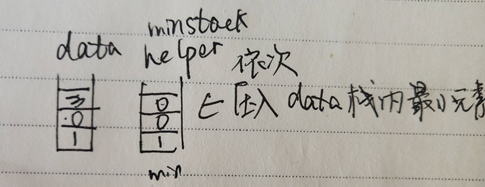 minstack
data helper 依次
3 0 ∈ 压入 data 栈内最小元素
0 0
1 1
min